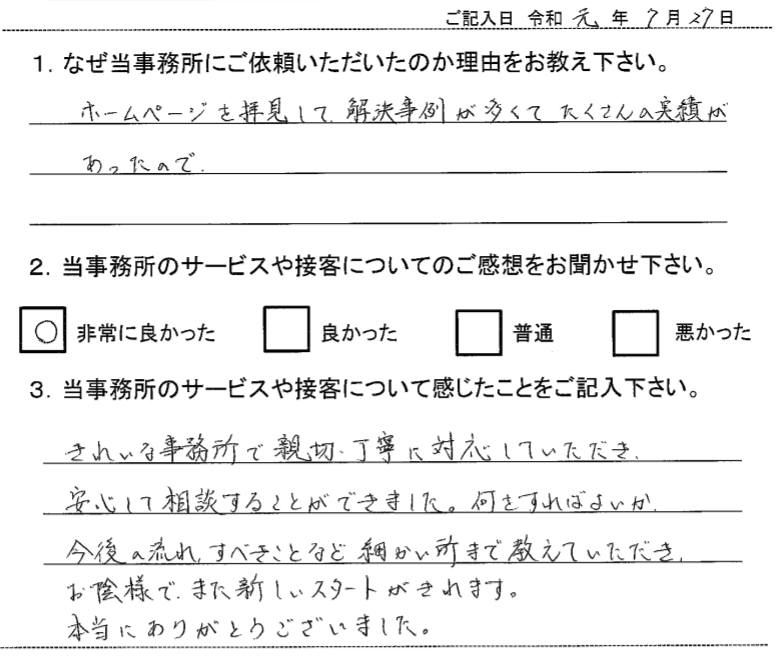 ご記入日 令和 元 年 7 月 27 日
1. なぜ当事務所にご依頼いただいたのか理由をお教え下さい。
ホームページを拝見して、解決事例が多くてたくさんの実績が
あったので、
2. 当事務所のサービスや接客についてのご感想をお聞かせ下さい。
○ 非常に良かった 良かった 普通 悪かった
3. 当事務所のサービスや接客について感じたことをご記入下さい。
きれいな事務所で親切、丁寧に対応していただき、
安心して相談することができました。何をすればよいか、
今後の流れ、すべきことなど細かい所まで教えていただき、
お陰様で、また新しいスタートがきれます。
本当にありがとうございました。